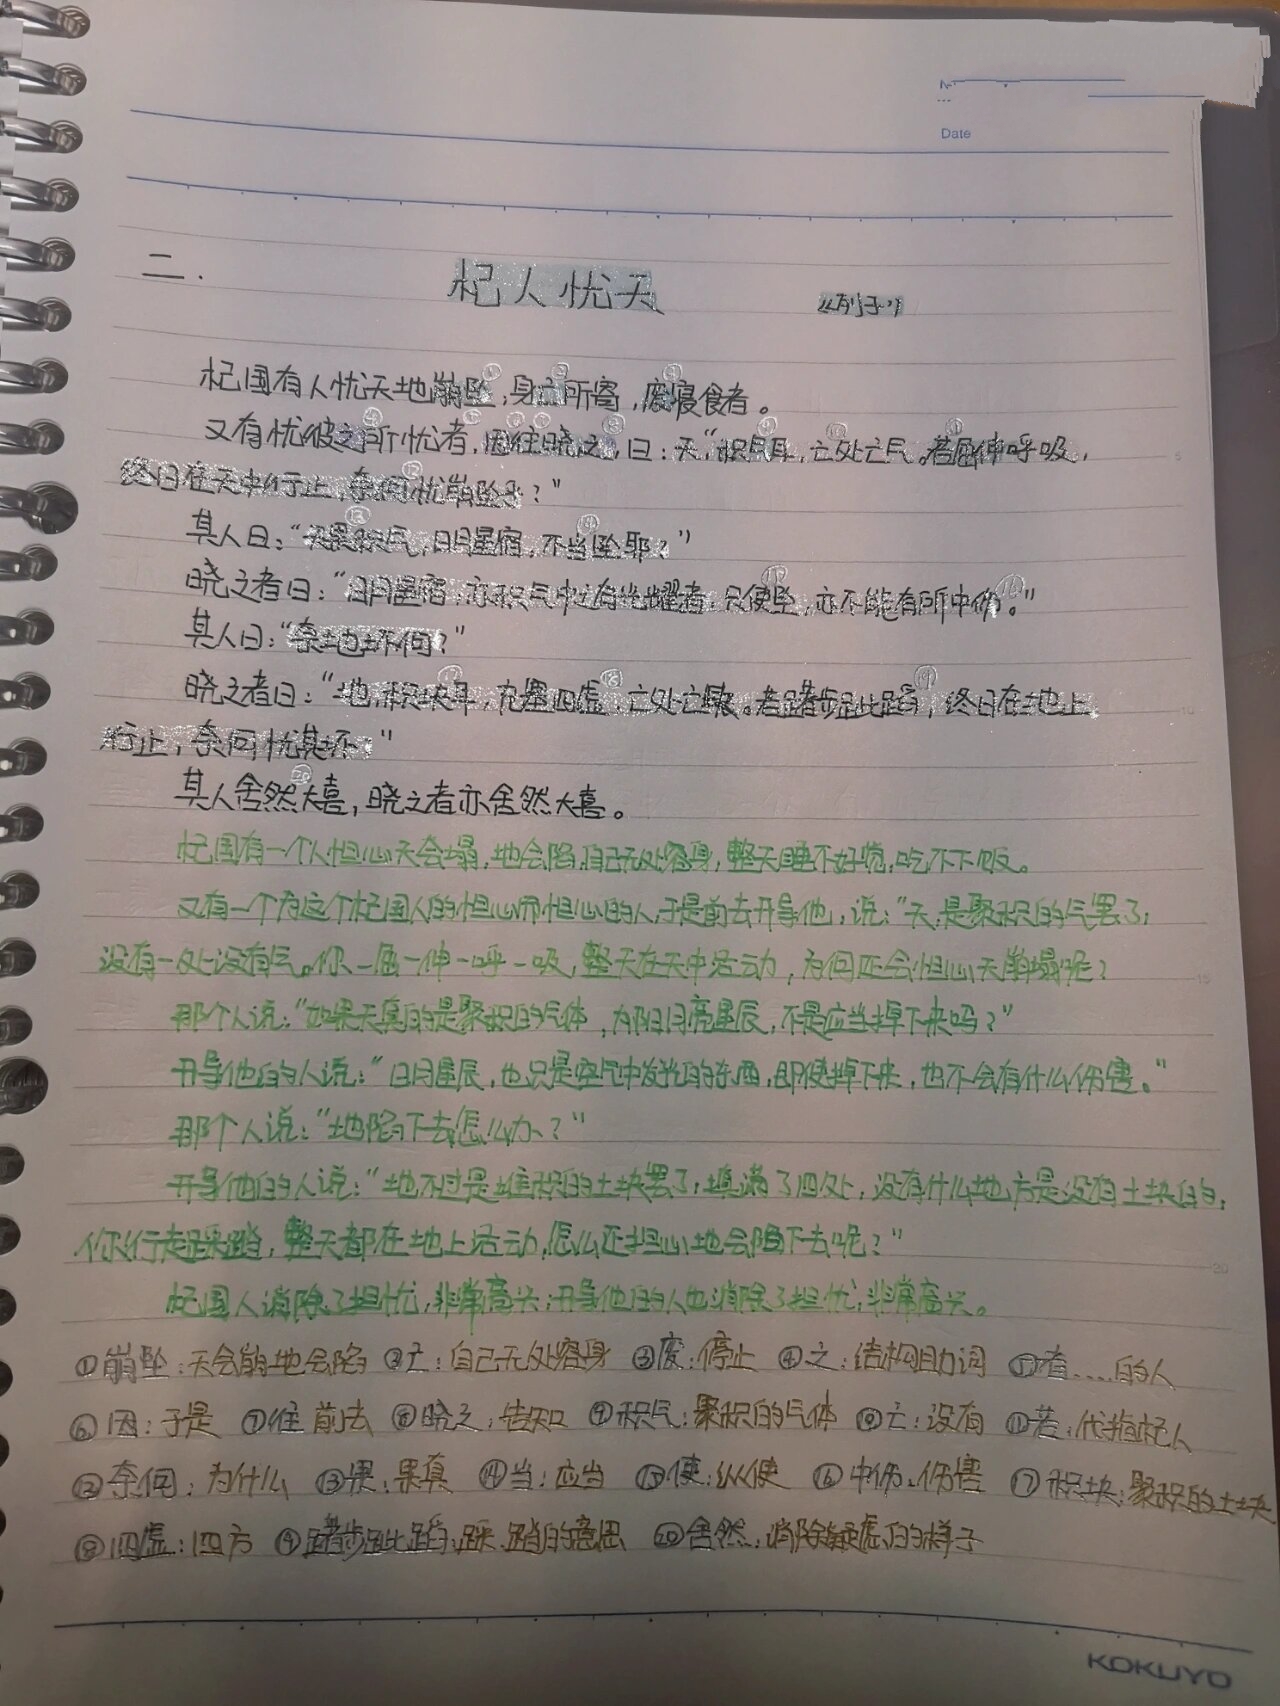 Date
二. 杞人忧天 《列子》
杞国有人忧天地崩坠①,身亡②所寄,废③寝食者。
又有忧彼之④所忧者⑤,因⑥往⑦晓之⑧,曰:天,“积气⑨耳,亡⑩处亡气。若⑪屈伸呼吸,
终日在天中行止,奈何⑫忧崩坠乎?”
其人曰:“天果⑬积气,日月星宿,不当⑭坠耶?”
晓之者曰:“日月星宿,亦积气中之有光耀者,只使⑮坠,亦不能有所中伤⑯。”
其人曰:“奈地坏何?”
晓之者曰:“地,积块⑰耳,充塞四虚⑱,亡处亡块。若躇步跐蹈⑲,终日在地上
行止,奈何忧其坏?”
其人舍然⑳大喜,晓之者亦舍然大喜。
杞国有一个人担心天会塌,地会陷,自己无处容身,整天睡不好觉,吃不下饭。
又有一个为这个杞国人的担心而担心的人,于是前去开导他,说:“天,是聚积的气罢了,
没有一处没有气。你一屈一伸一呼一吸,整天在天中活动,为何还会担心天崩塌呢?
那个人说:“如果天真的是聚积的气体,那日月亮星辰,不是应当掉下来吗?”
开导他的人说:“日月星辰,也只是空气中发光的东西,即使掉下来,也不会有什么伤害。”
那个人说:“地陷下去怎么办?”
开导他的人说:“地不过是堆积的土块罢了,填满了四处,没有什么地方是没有土块的,
你行走踩踏,整天都在地上活动,怎么还担心地会陷下去呢?”
杞国人消除了担忧,非常高兴;开导他的人也消除了担忧,非常高兴。
①崩坠:天会崩地会陷 ②亡:自己无处容身 ③废:停止 ④之:结构助词 ⑤者....的人
⑥因:于是 ⑦往 前去 ⑧晓之:告知 ⑨积气:聚积的气体 ⑩亡:没有 ⑪若:代指杞人
⑫奈何:为什么 ⑬果:果真 ⑭当:应当 ⑮使:纵使 ⑯中伤:伤害 ⑰积块:聚积的土块
⑱四虚:四方 ⑲躇步跐蹈:踩、踏的意思 ⑳舍然:消除疑虑的样子
KOKUYO